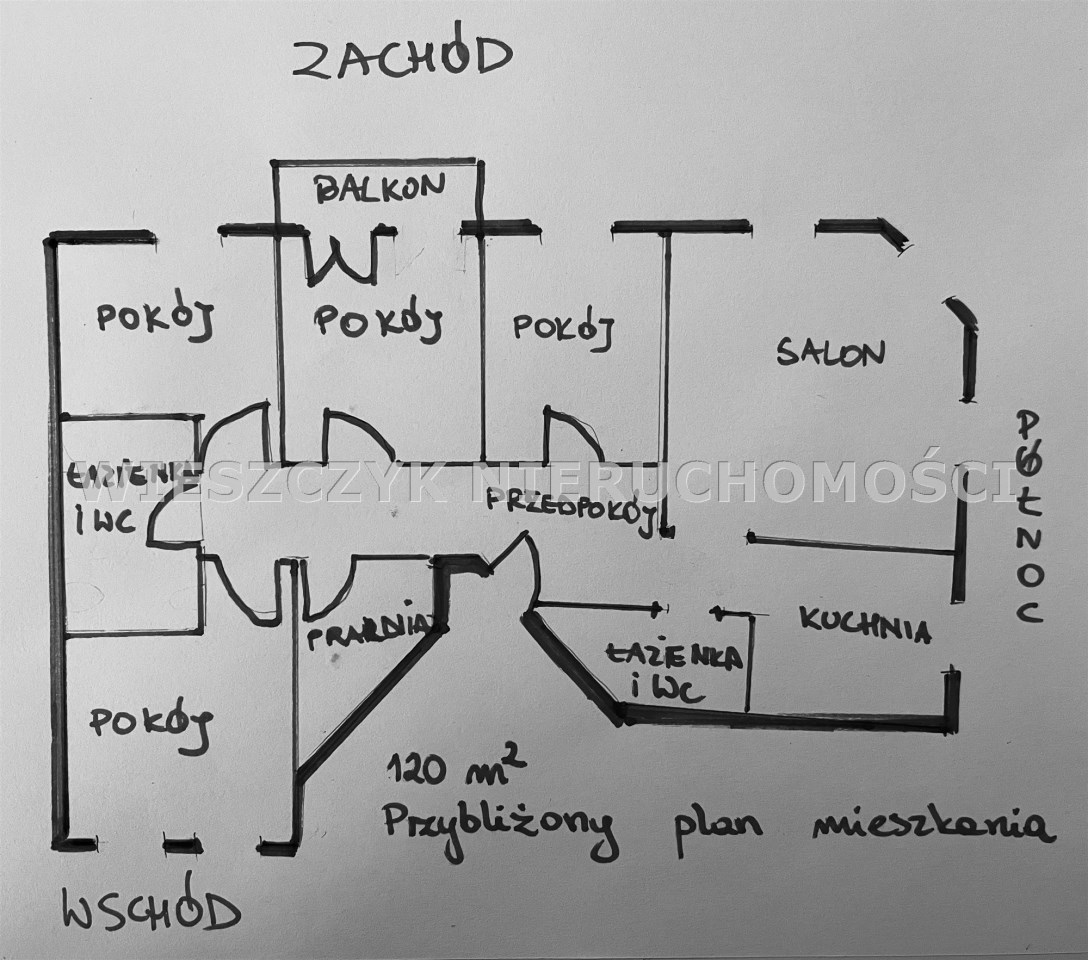 ZACHÓD
BALKON
POKÓJ
POKÓJ
POKÓJ
SALON
PÓŁNOC
ŁAZIENK
I WC
WIESZCZYK NIERUCHOMOŚCI
PRZEDPOKÓJ
PRALNIA
KUCHNIA
ŁAZIENKA
I WC
POKÓJ
120 m²
Przybliżony plan mieszkania
WSCHÓD